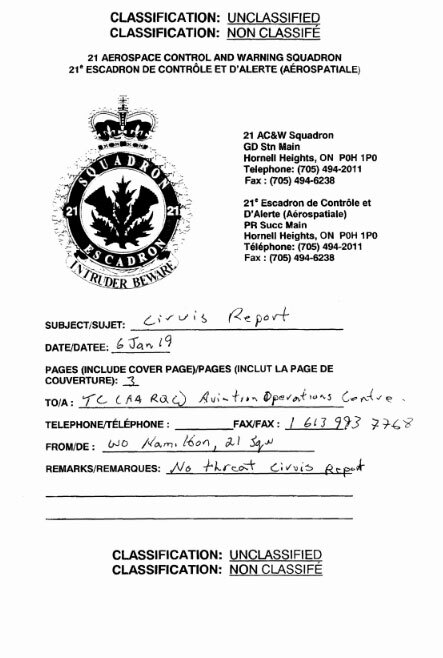 CLASSIFICATION: UNCLASSIFIED
CLASSIFICATION: NON CLASSIFÉ
21 AEROSPACE CONTROL AND WARNING SQUADRON
21e ESCADRON DE CONTRÔLE ET D'ALERTE (AÉROSPATIALE)
SQUADRON
21 21
ESCADRON
INTRUDER BEWARE
21 AC&W Squadron
GD Stn Main
Hornell Heights, ON P0H 1P0
Telephone: (705) 494-2011
Fax : (705) 494-6238
21e Escadron de Contrôle et
D'Alerte (Aérospatiale)
PR Succ Main
Hornell Heights, ON P0H 1P0
Téléphone: (705) 494-2011
Fax : (705) 494-6238
SUBJECT/SUJET: Cirvis Report
DATE/DATEE: 6 Jan 19
PAGES (INCLUDE COVER PAGE)/PAGES (INCLUT LA PAGE DE
COUVERTURE): 3
TO/A : TC (AARQG) Aviation Operations Centre.
TELEPHONE/TÉLÉPHONE : FAX/FAX : 1 613 993 7768
FROM/DE : WO Hamilton, 21 Sqn
REMARKS/REMARQUES: No threat Cirvis Report
CLASSIFICATION: UNCLASSIFIED
CLASSIFICATION: NON CLASSIFÉ